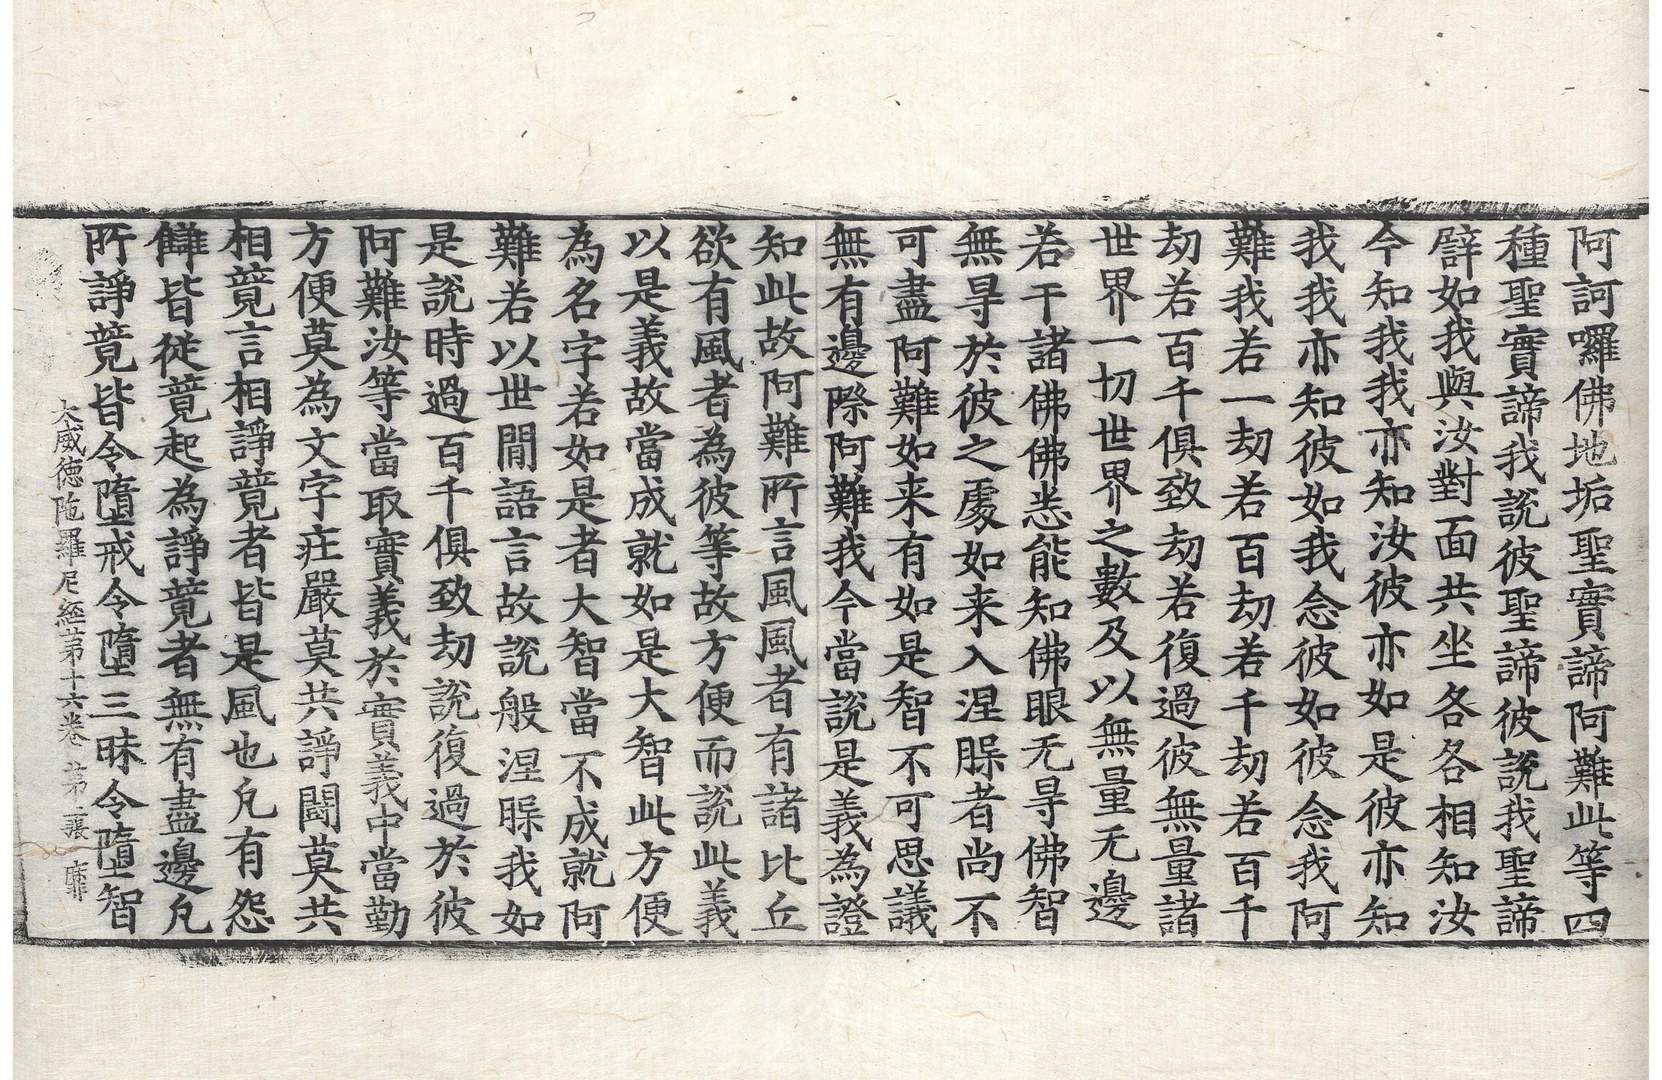 阿訶囉佛地垢聖實諦阿難此等四
種聖實諦我說彼聖諦彼說我聖諦
譬如我與汝對面共坐各各相知汝
今知我我亦知汝彼亦如是彼亦知
我我亦知彼如我念彼如彼念我阿
難我若一劫若百劫若千劫若百千
劫若百千俱致劫若復過彼無量諸
世界一切世界之數及以無量无邊
若干諸佛佛悉能知佛眼无㝵佛智
無㝵於彼之處如来入涅槃者尚不
可盡阿難如来有如是智不可思議
無有邊際阿難我今當說是義為證
知此故阿難所言風風者有諸比丘
欲有風者為彼等故方便而說此義
以是義故當成就如是大智此方便
為名字若如是者大智當不成就阿
難若以世閒語言故說般涅槃我如
是說時過百千俱致劫說復過於彼
阿難汝等當取實義於實義中當勤
方便莫為文字莊嚴莫共諍鬪莫共
相競言相諍競者皆是風也凡有怨
讎皆從競起為諍競者無有盡邊凡
所諍競皆令墮戒令墮三昧令墮智
大威德陁羅尼經第十六卷 第 張 靡